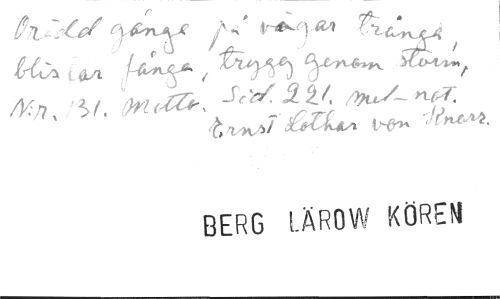 Orädd gånga på vågar trånga,
blixtar fånga, trygg genom storm,
N:r. 131. Motto. Sid. 221. mel-not.
Ernst Lothar von Knorr.
BERG LÄROW KÖREN